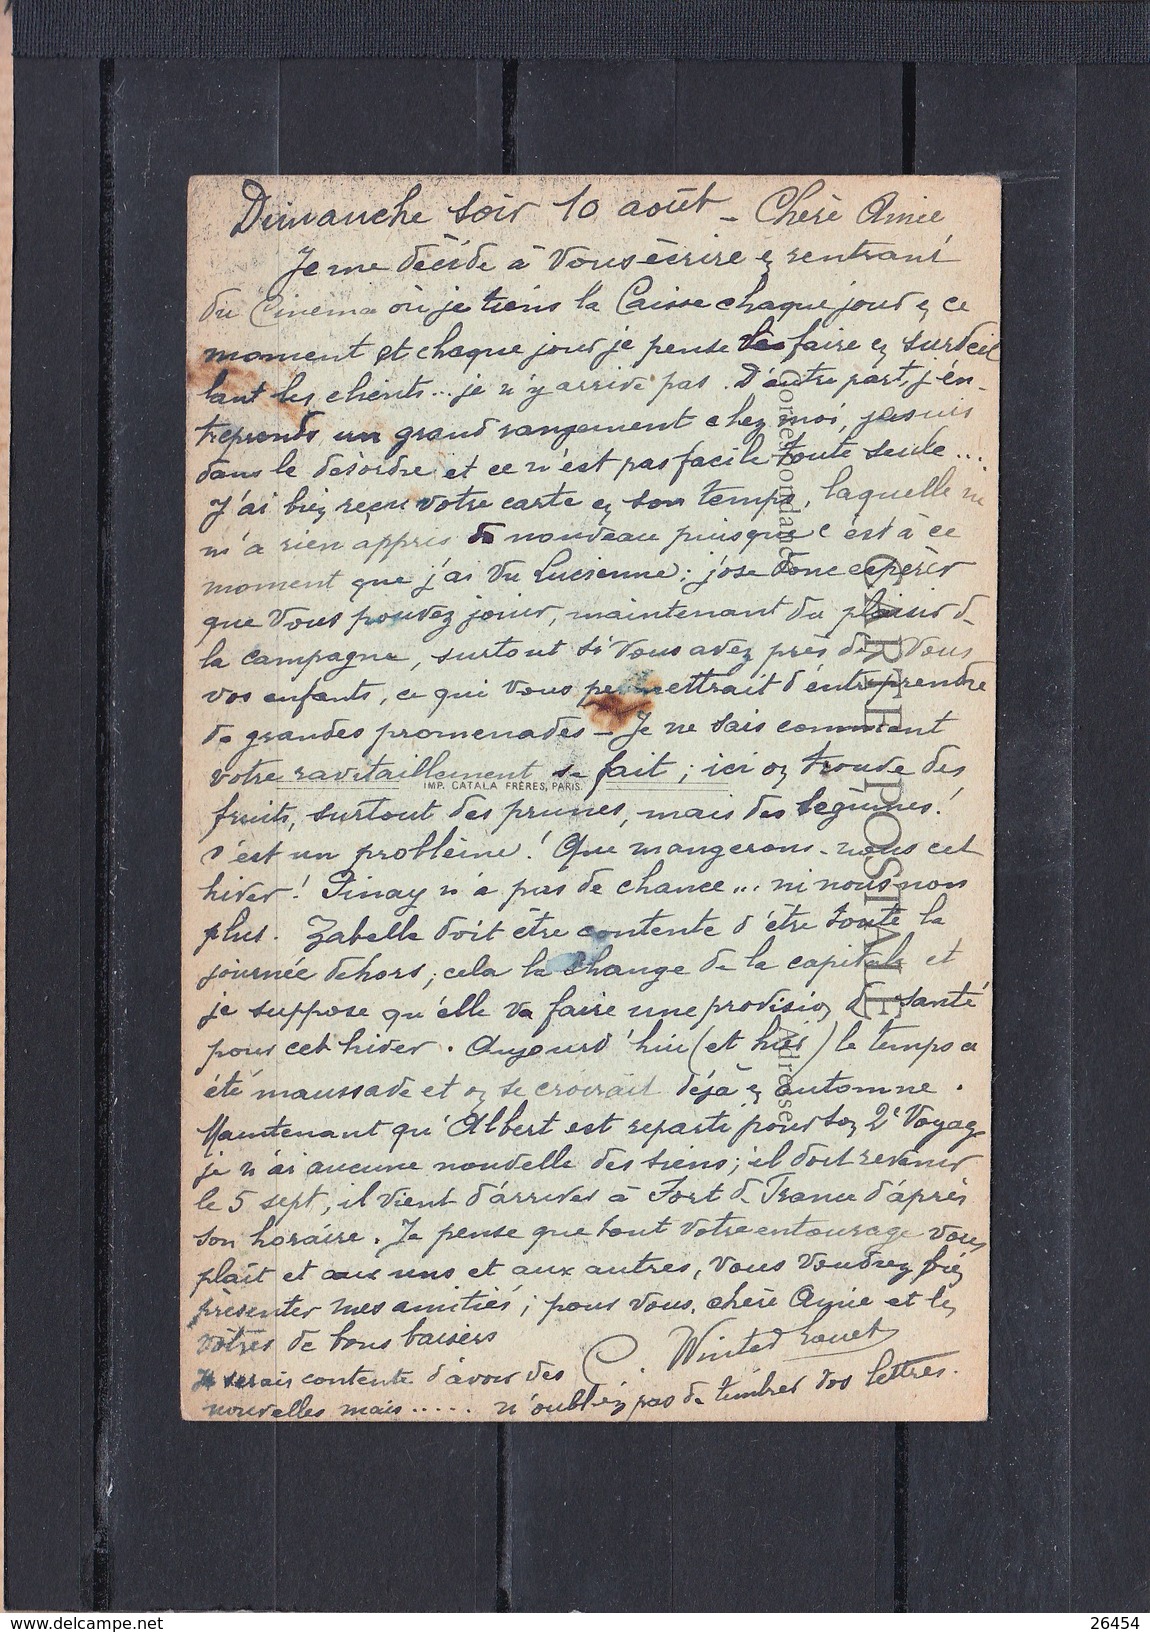 Dimanche soir 10 août - Chère Amie
Je me décide à vous écrire en rentrant
du Cinéma où je tiens la Caisse chaque jour en ce
moment et chaque jour je pense le faire en surveil
lant les clients... je n'y arrive pas. D'autre part, j'en-
treprends un grand rangement chez moi, je suis
dans le désordre et ce n'est pas facile toute seule...
J'ai bien reçu votre carte en son temps, laquelle ne
m'a rien appris de nouveau puisque c'est à ce
moment que j'ai vu Lucienne; j'ose donc espérer
que vous pouvez jouir, maintenant du plaisir de
la campagne, surtout si vous avez près de vous
vos enfants, ce qui vous permettrait d'entreprendre
de grandes promenades - Je ne sais comment
votre ravitaillement se fait; ici on trouve des
fruits, surtout des prunes, mais des légumes!
c'est un problème! Que mangerons-nous cet
hiver! Finay n'a pas de chance... ni nous non
plus. Zabelle doit être contente d'être toute la
journée dehors; cela la change de la capitale et
je suppose qu'elle va faire une provision de santé
pour cet hiver. Aujourd'hui (et hier) le temps a
été maussade et on se croirait déjà en automne.
Maintenant qu'Albert est reparti pour son 2e voyage
je n'ai aucune nouvelle des siens; il doit revenir
le 5 sept, il vient d'arriver à Fort de France d'après
son horaire. Je pense que tout votre entourage vous
plaît et aux uns et aux autres, vous voudrez bien
présenter mes amitiés; pour vous, chère Amie et les
vôtres de bons baisers
C. Winter
Je serais contente d'avoir des
nouvelles mais..... n'oubliez pas de timbrer vos lettres.
CARTE POSTALE
Correspondance
Adresse
IMP. CATALA FRÈRES, PARIS.
www.delcampe.net
your-world-of-stamps
26454